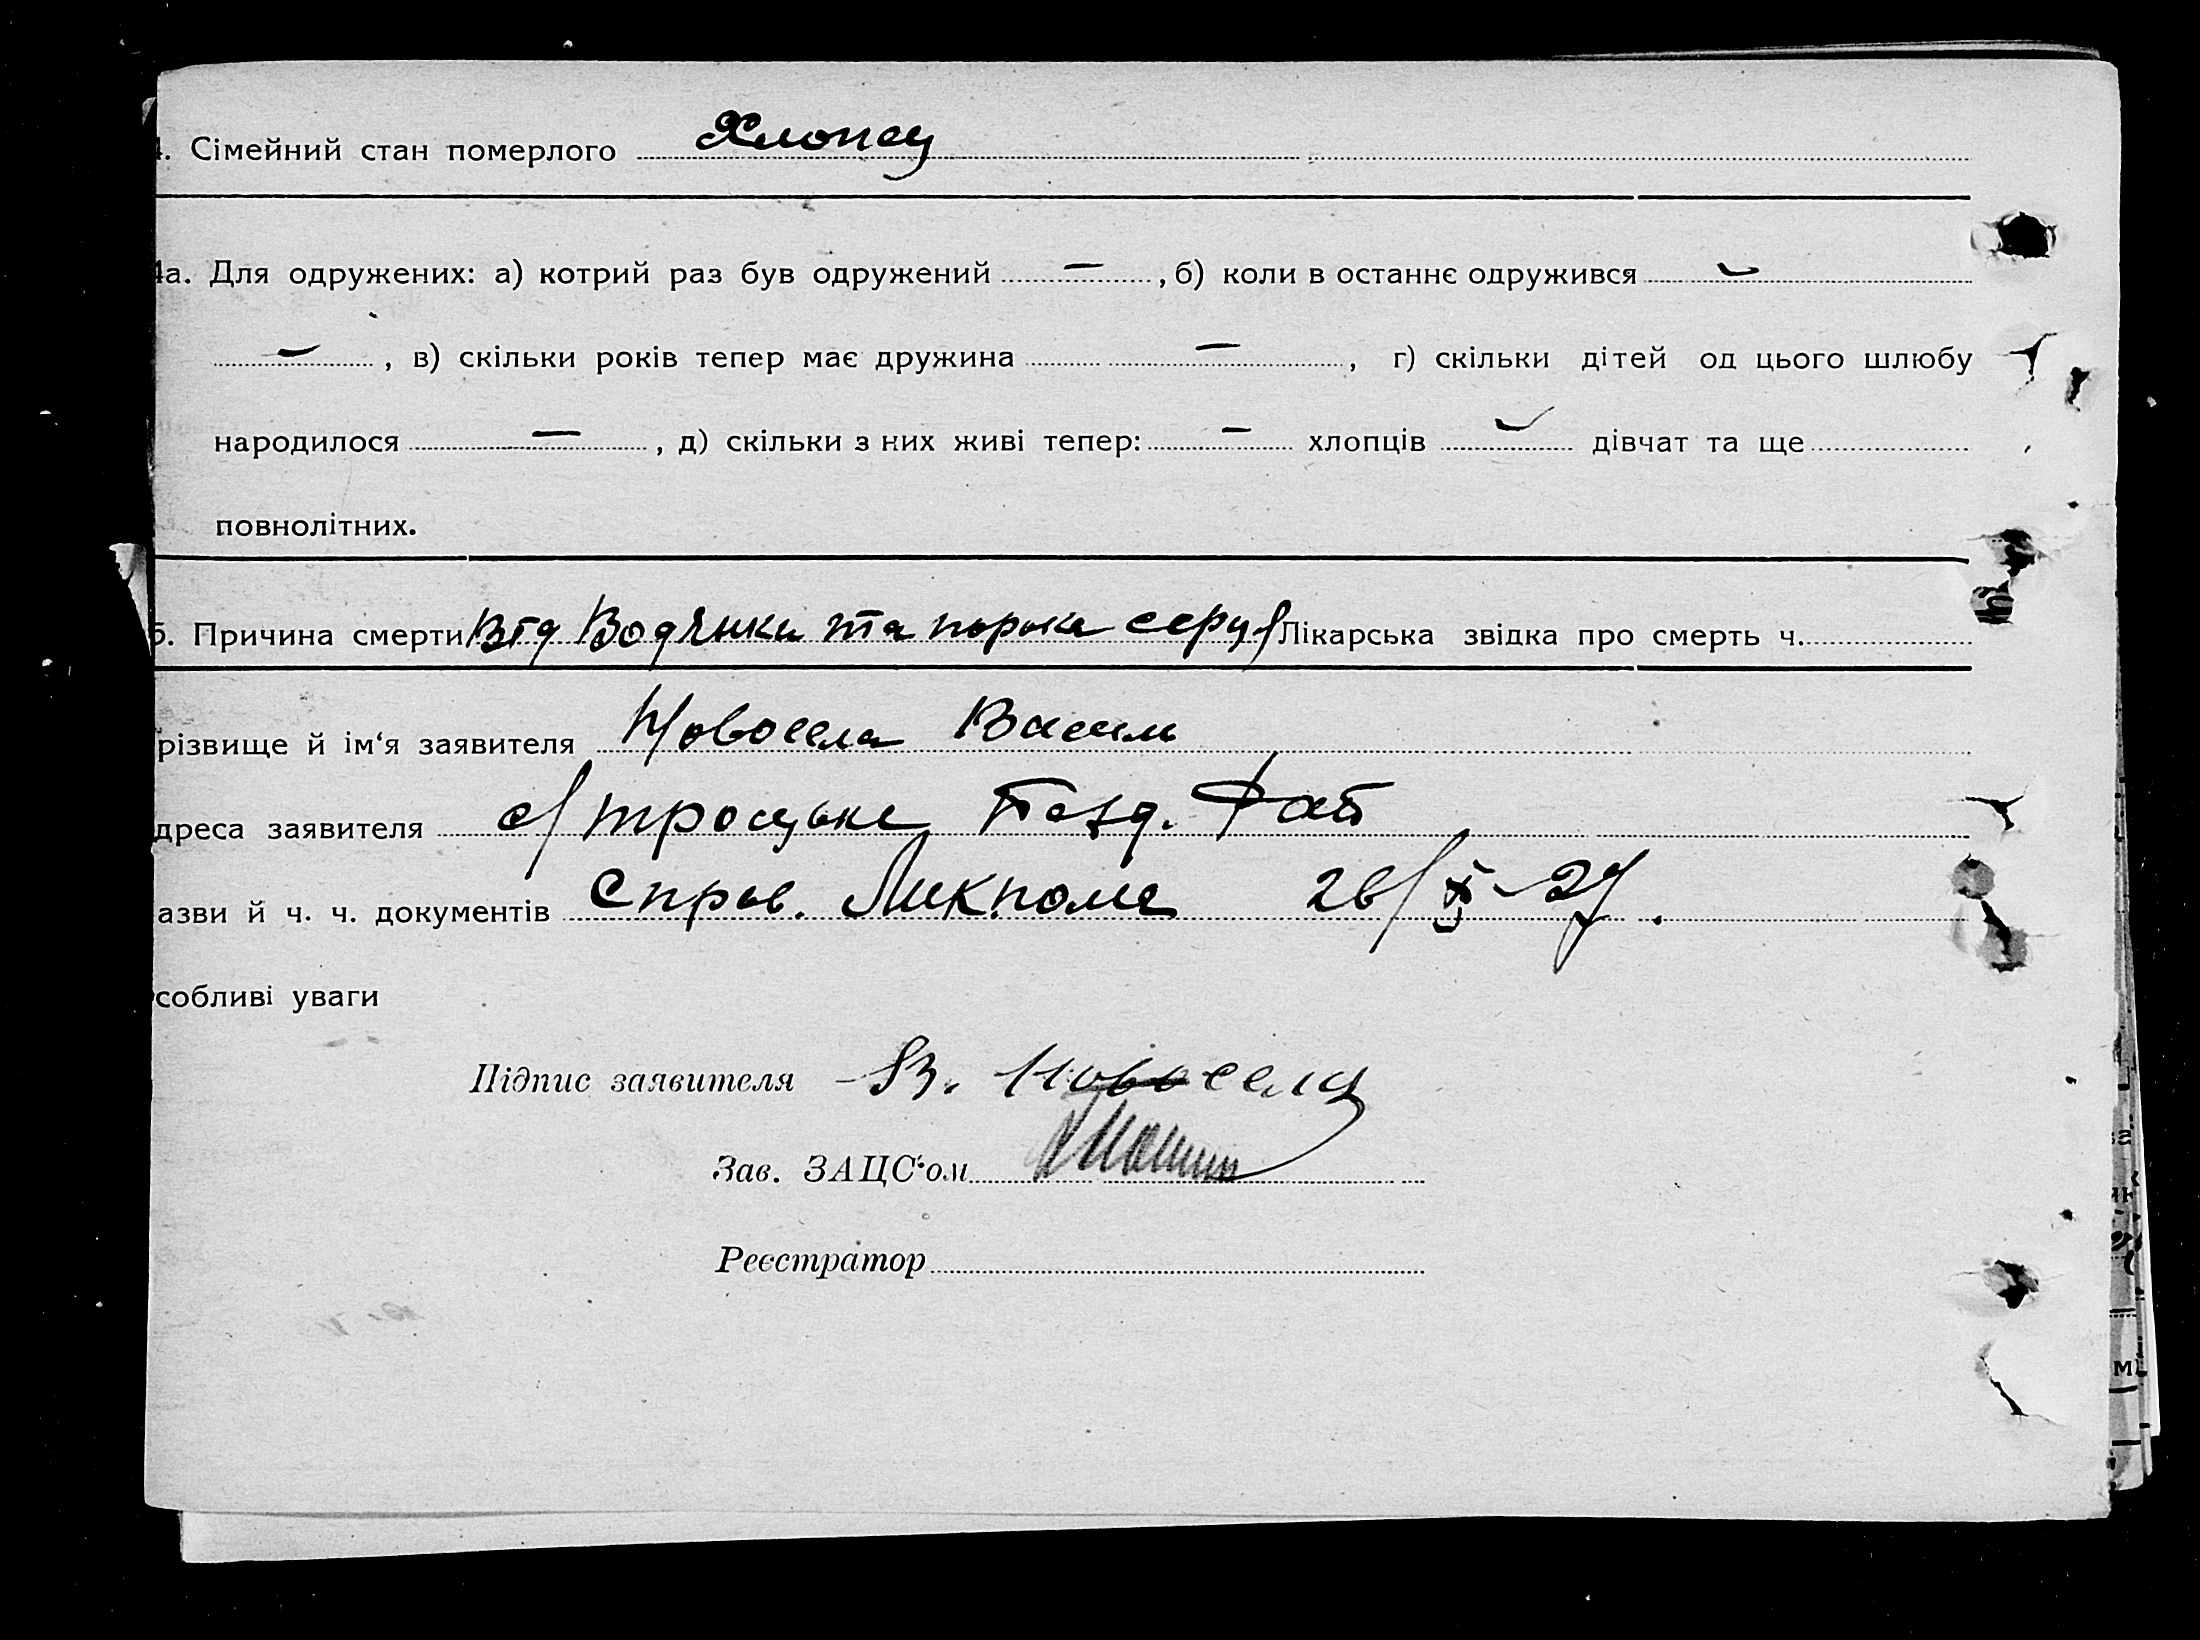 4. Сімейний стан померлого Хлопец
4а. Для одружених: а) котрий раз був одружений —, б) коли в останнє одружився —
—, в) скільки років тепер має дружина —, г) скільки дітей од цього шлюбу
народилося —, д) скільки з них живі тепер: — хлопців — дівчат та ще
повнолітних.
5. Причина смерти Від Водянки та порока серця Лікарська звідка про смерть ч.
різвище й ім'я заявителя Новосела Василь
дреса заявителя с/ Троцьке
азви й ч. ч. документів Справ. Ликпома 26/XI-27.
собливі уваги
Підпис заявителя В. Новосела
Зав. ЗАЦС'ом
Реєстратор